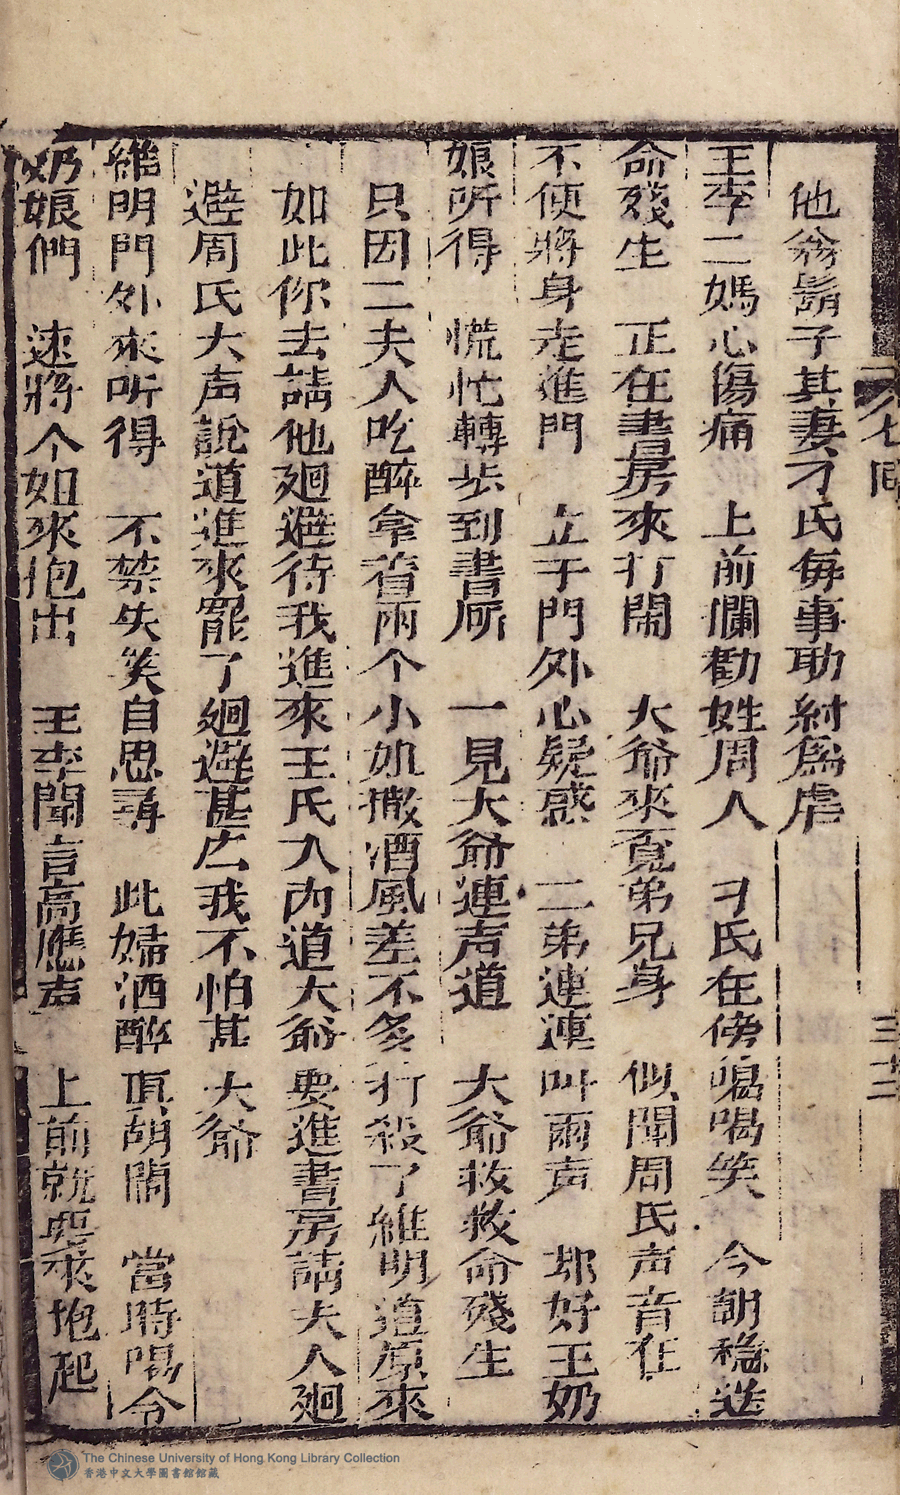 八七回
三十二
他翁鬍子其妻刁氏每事助紂為虐
王李二媽心傷痛 上前攔勸姓周人 刁氏在傍喝笑 今朝穩送
命殘生 正在書房來打鬧 大爺來覓弟兄身 似聞周氏声音在
不便將身走進門 立于門外心疑惑 二弟連連叫兩声 那好王奶
娘所得 慌忙轉步到書所 一見大爺連声道 大爺救救命殘生
只因二夫人吃醉拿着兩个小如撒酒風差不多打殺了維明道原來
如此你去請他廻避待我進來王氏入內道大爺要進書房請夫人廻
避周氏大声說道進來罷了廻避甚広我不怕甚大爺
維明門外來听得 不禁失笑自思尋 此婦酒醉真胡鬧 當時喝令
奶娘們 速將个如來抱出 王李聞言高應声 上前就要來抱起
The Chinese University of Hong Kong Library Collection
香港中文大學圖書館館藏